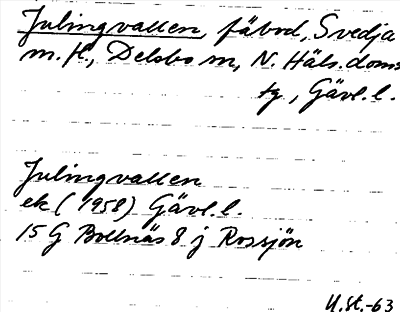 Julingvallen, fäbod, Svedja
m. fl., Delsbo sn, N. Häls. doms
tg, Gävl. l.
Julingvallen
ek (1958) Gävl. l.
15 G Bollnäs 8 j Rossjön
U.St.-63